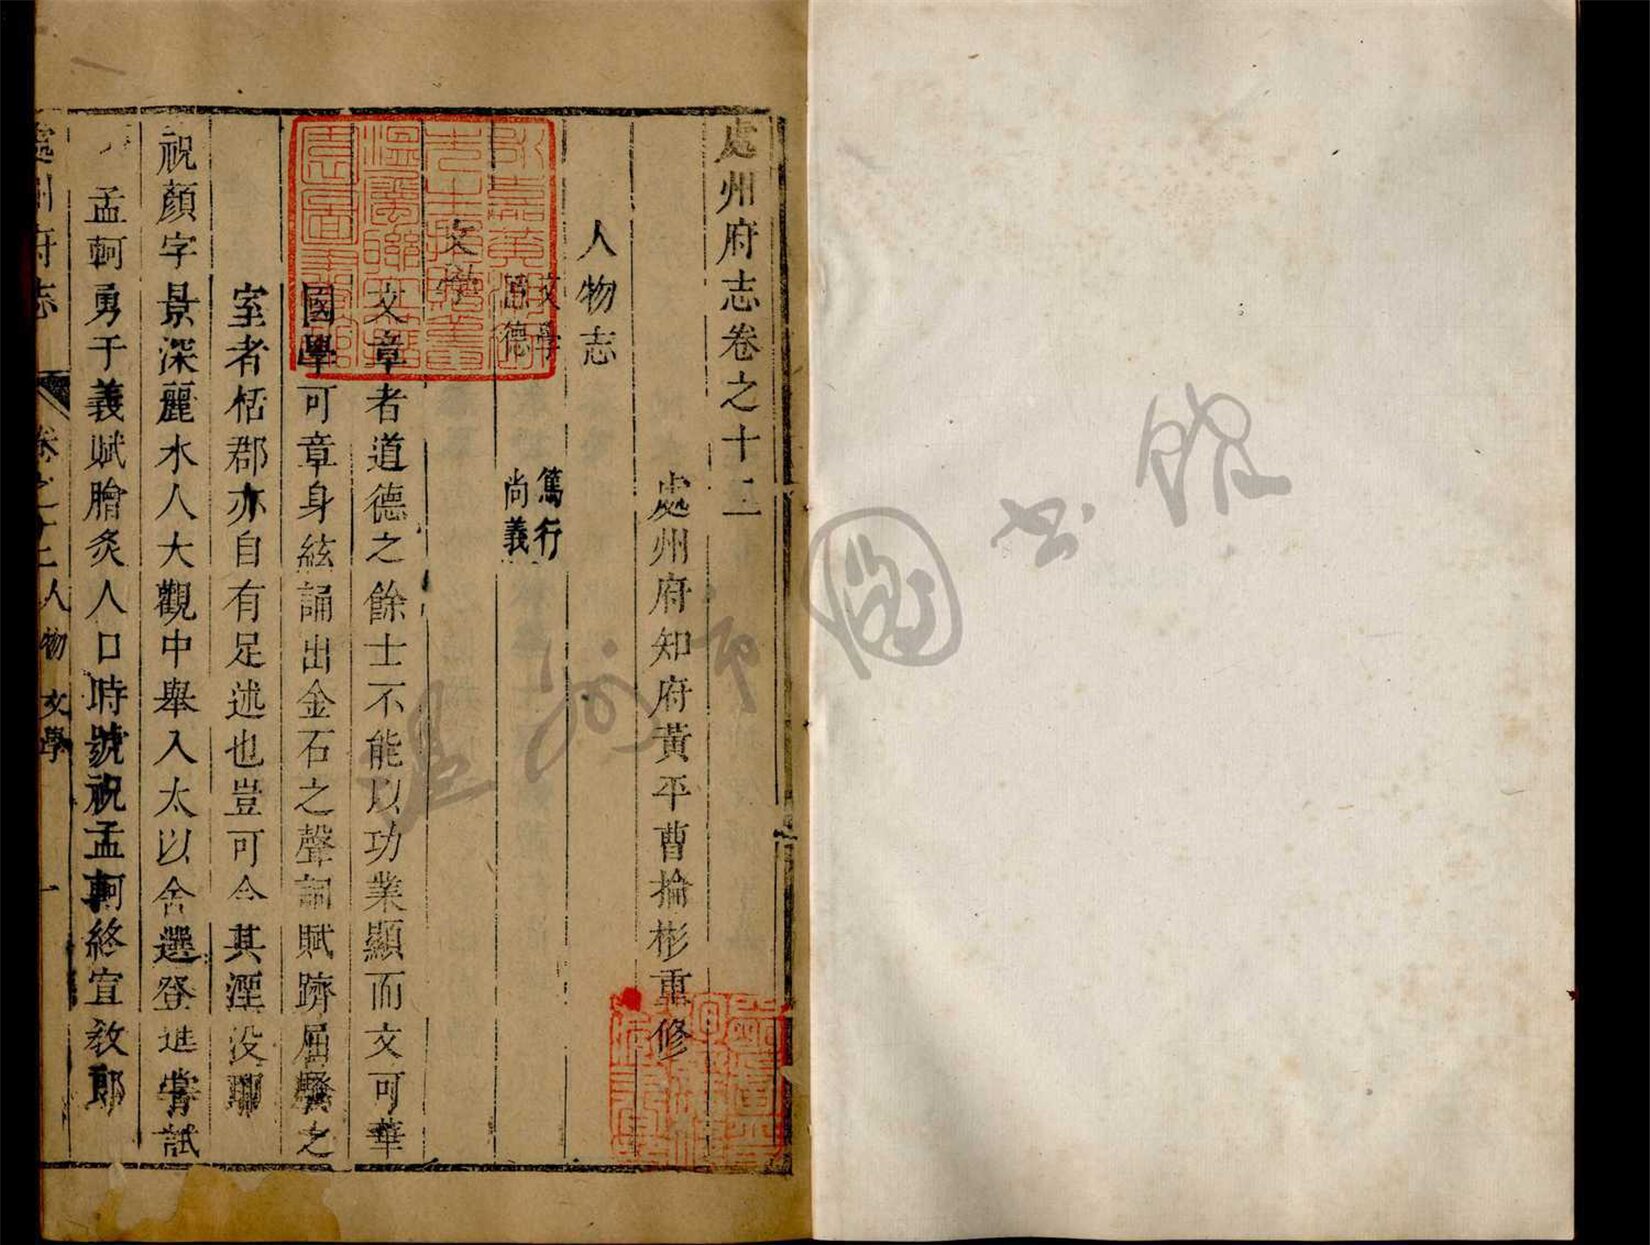 處州府志卷之十二
處州府知府黃平曹掄彬重修
人物志
文學 篤行
隱德 尚義
文學
文章者道德之餘士不能以功業顯而文可華
國學可章身絃誦出金石之聲詞賦躋屈騷之
室者栝郡亦自有足述也豈可令其湮沒聊
祝顏字景深麗水人大觀中舉入太以舍選登進嘗試
孟軻勇于義賦膾炙人口時號祝孟軻終宣教郎
處州府志 卷之十二 人物 文學 一
溫州市圖書館